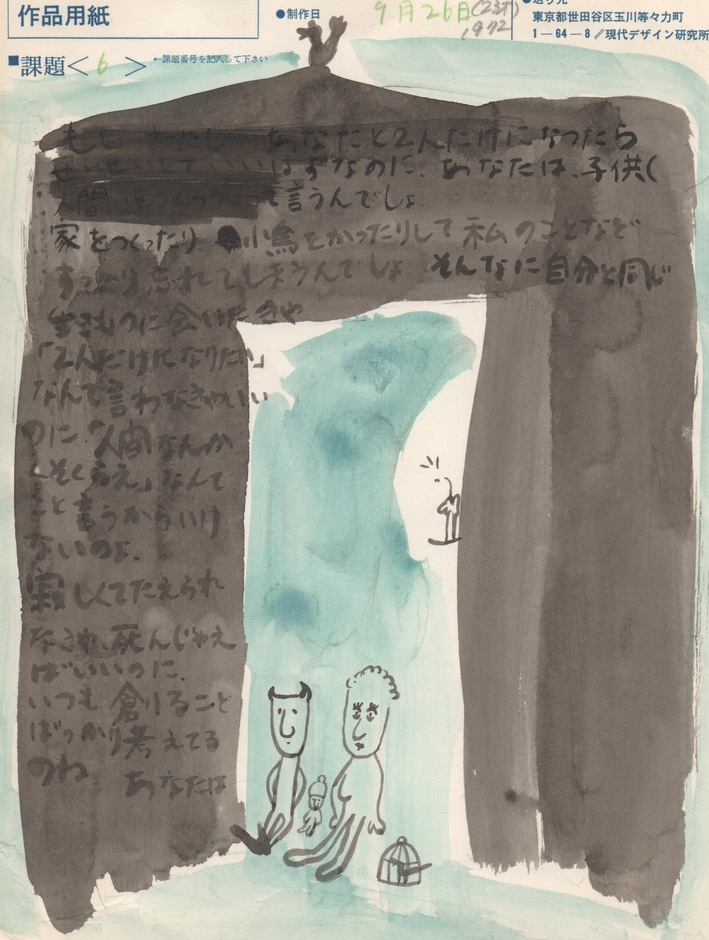 作品用紙
●制作日
9月26日(23才)
1972
東京都世田谷区玉川等々力町
1—64—8／現代デザイン研究所
■課題<6>
←課題番号を記入して下さい
もし わたし あなたと2人だけになったら
せいせいしていいはずなのに、あなたは、子供(
人間 をつくろうって言うんでしょ。
家をつくったり 小鳥をかったりして私のことなど
すっかり忘れてしまうんでしょ そんなに自分と同じ
生きものに会いたきゃ
「2人だけになりたい」
なんて言わなきゃいい
のに.「人間なんか
くそくらえ」なんて
こと言うからいけ
ないのよ.
寂しくてたえられ
なきゃ、死んじゃえ
ばいいのに、
いつも創ること
ばっかり考えてる
のね. あなたは